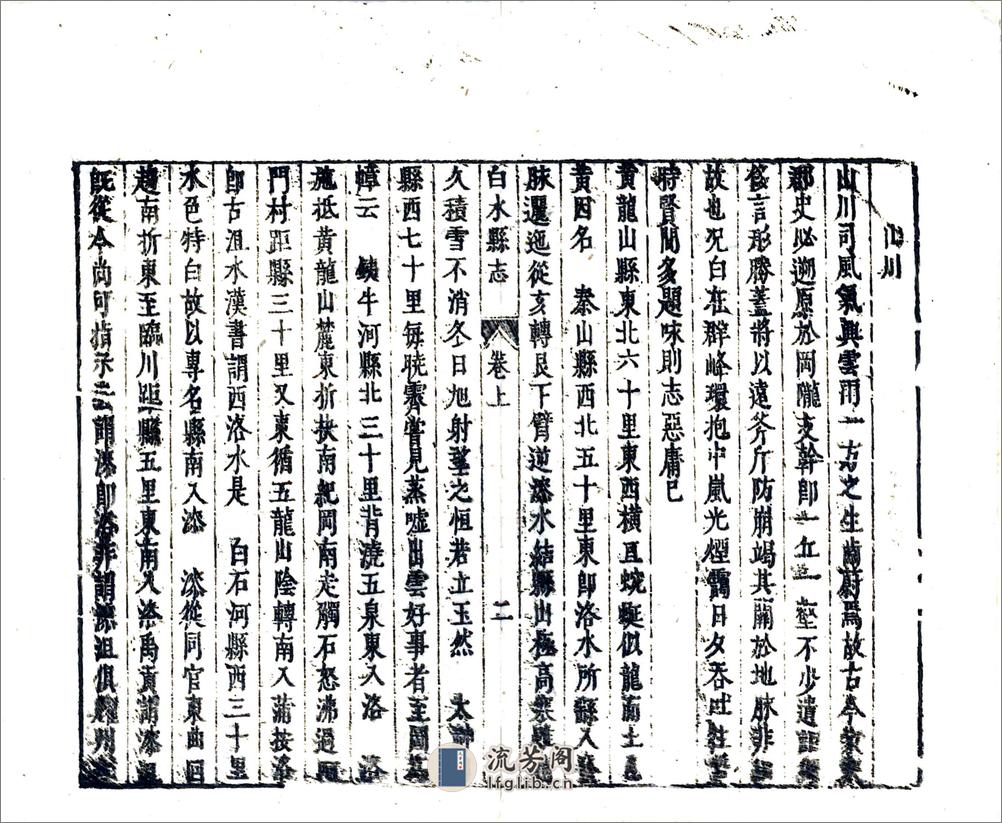 山川
山川司風氣興雲雨一方之生繭蔚焉故古今
郡史必遡原於岡隴支幹卽一丘一壑不少遺詎
侈言形勝蓋將以遠斧斤防崩竭其關於地脉非
故也況白在群峰環抱中嵐光煙靄日夕吞吐
時賢間多題咏則志惡庸已
黃龍山縣東北六十里東西橫亘蜿蜒似龍而土
黃因名 秦山縣西北五十里東卽洛水所繇入
脉邐迤從亥轉艮下臂逆漆水結縣山極高
白水縣志 卷上 二
久積雪不消冬日旭射望之恒若立玉然 太
縣西七十里每曉霽嘗見蒸噓出雲好事者
幛云 鐵牛河縣北三十里背澆五泉東入洛 洛
抵黃龍山麓東折扶南紀岡南走觸石怒沸過
門村距縣三十里又東循五龍山陰轉南入蒲按洛
卽古沮水漢書謂西洛水是 白石河縣西三十里
水色特白故以專名縣南入漆 漆從同官東曲回
趨南折東至臨川距縣五里東南入洛禹貢謂漆沮
旣從今尚可指示 謂漆卽洛非謂漆沮俱
流芳阁
lfglib.cn